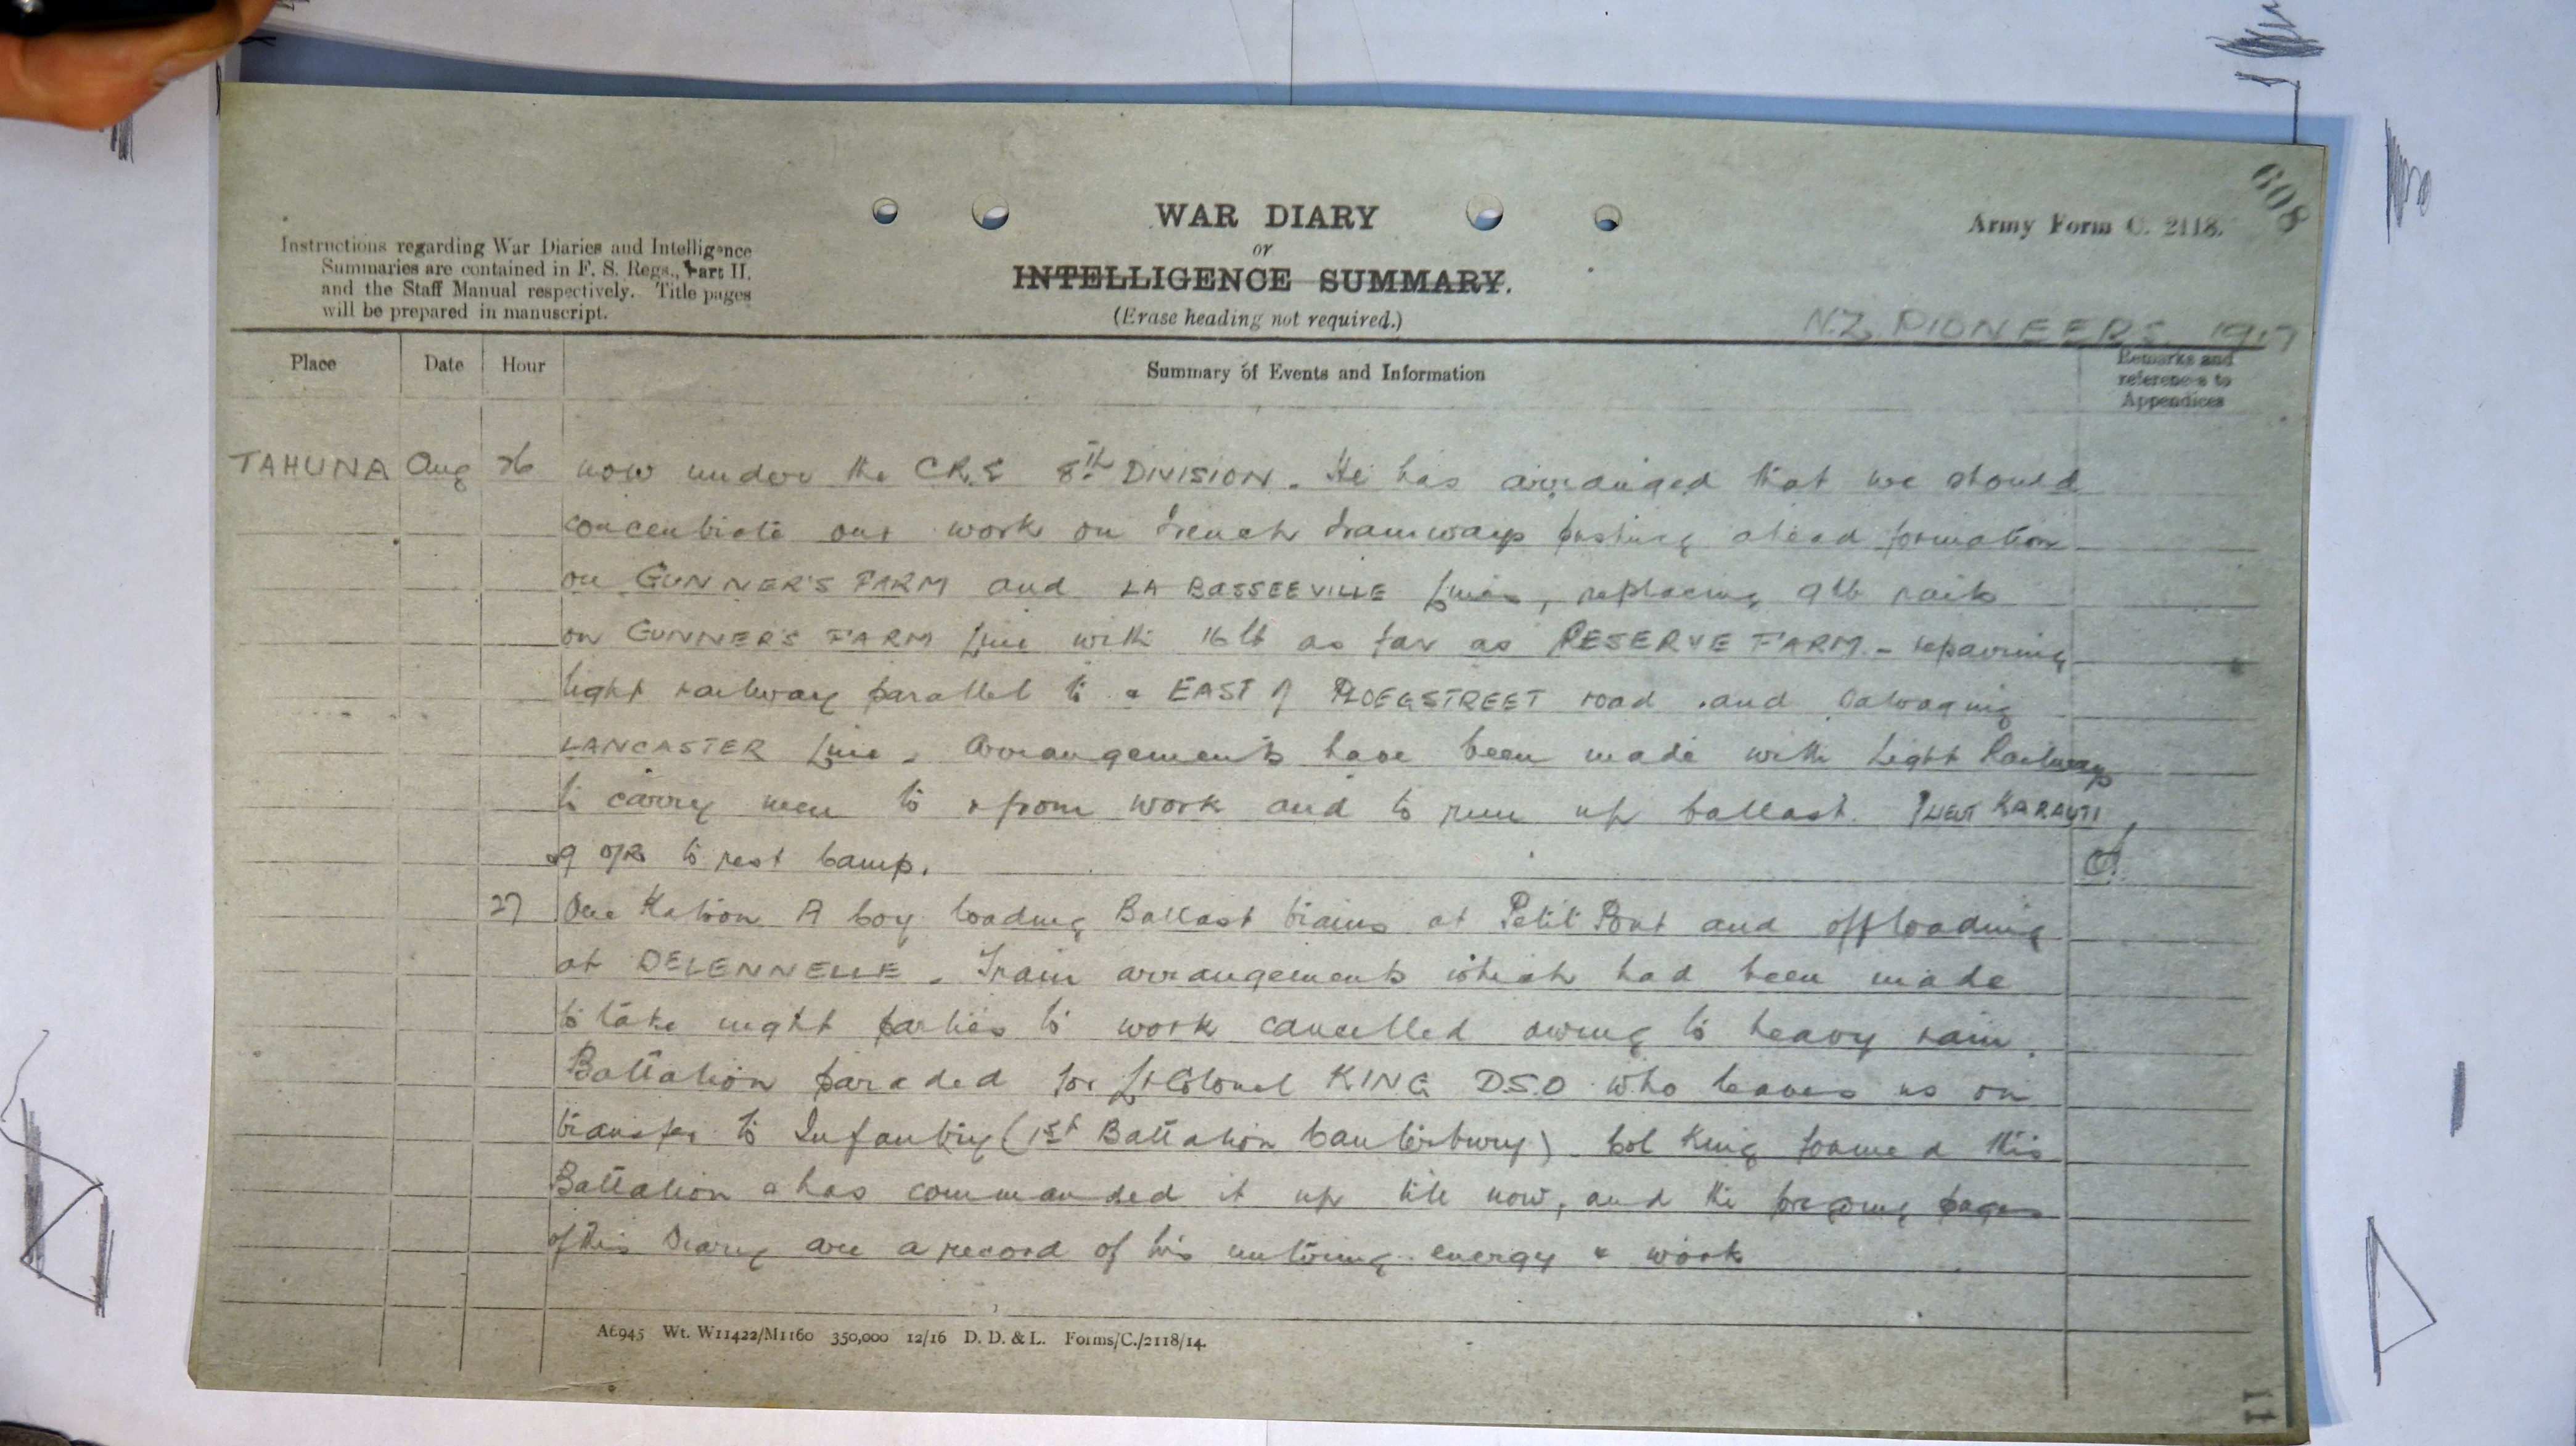 608
Army Form C. 2118.
WAR DIARY
or
INTELLIGENCE SUMMARY.
(Erase heading not required.)
Instructions regarding War Diaries and Intelligence
Summaries are contained in F. S. Regs., Part II.
and the Staff Manual respectively. Title pages
will be prepared in manuscript.
N.Z. PIONEERS 1917
Place Date Hour Summary of Events and Information Remarks and references to Appendices
TAHUNA Aug 26 now under the CR.E 8th DIVISION. He has arranged that we should
concentrate our work on trench tramways pushing ahead formation
on GUNNER'S FARM and LA BASSEEVILLE lines, replacing 9lb rails
on GUNNER'S FARM line with 16lb as far as RESERVE FARM - repairing
light railway parallel to & EAST of PLOEGSTREET road and salvaging
LANCASTER line. Arrangements have been made with Light Railways
to carry men to & from work and to run up ballast.
9 O/R to rest Camp.
27 One A Coy loading Ballast trains at Petit Pont and offloading
at DELENNELLE. Train arrangements which had been made
to take night parties to work cancelled owing to heavy rain.
Battalion paraded for Lt Colonel KING D.S.O who leaves us on
transfer to Infantry (1st Battalion Canterbury) Col King formed this
Battalion & has commanded it up till now, and the foregoing pages
of this Diary are a record of his untiring energy & work
A6945 Wt. W11422/M1160 350,000 12/16 D. D. & L. Forms/C./2118/14.
11